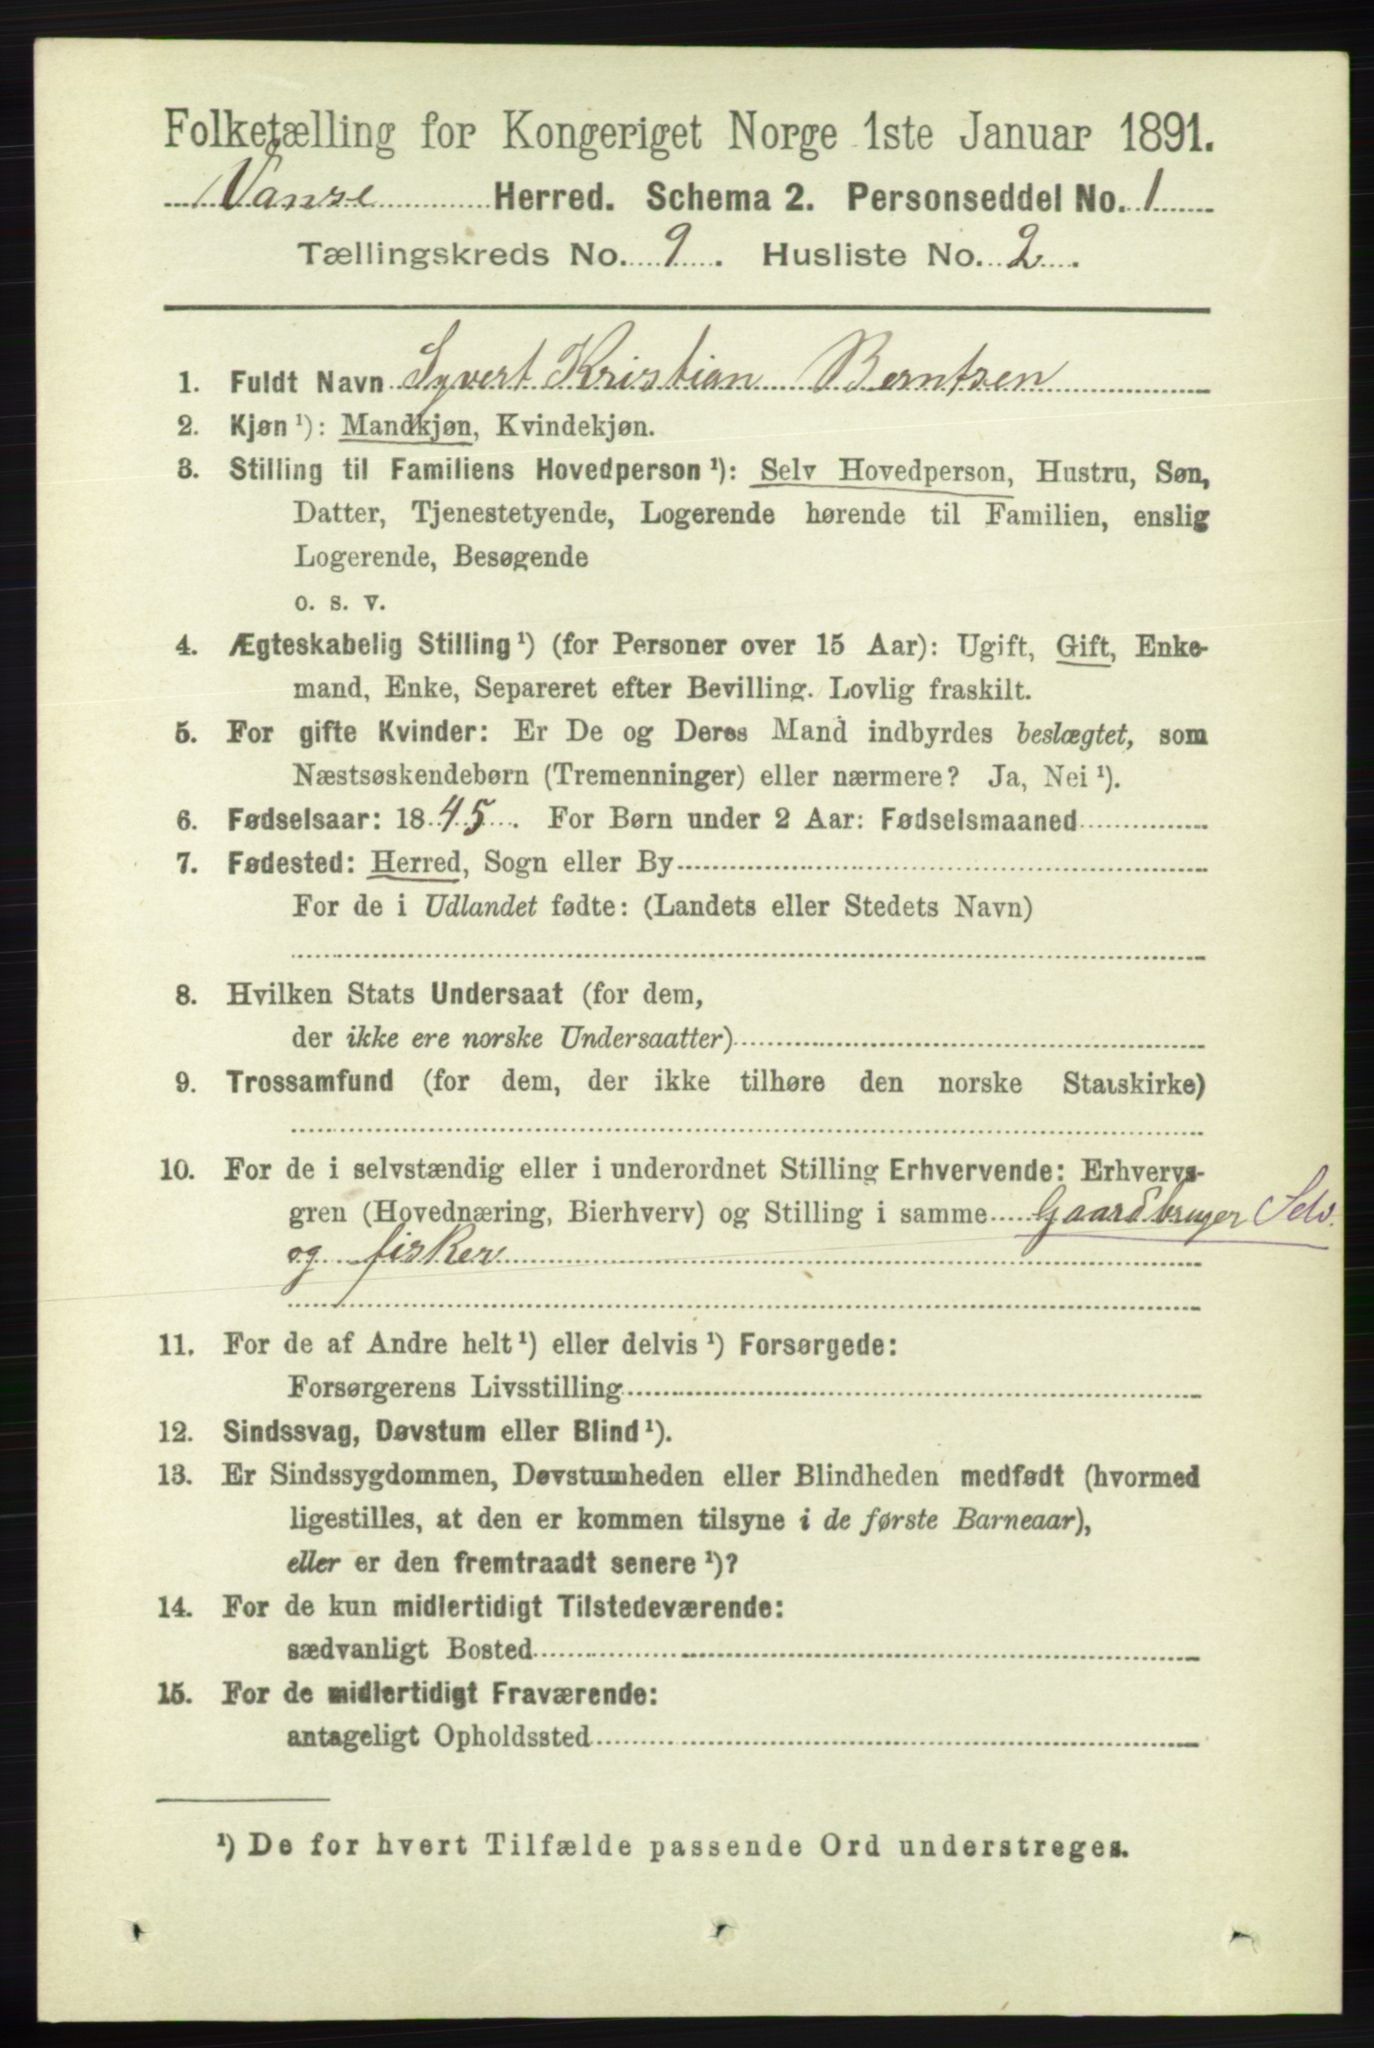 Folketælling for Kongeriget Norge 1ste Januar 1891.
Vanse Herred. Schema 2. Personseddel No. 1
Tællingskreds No. 9. Husliste No. 2.
1. Fuldt Navn Syvert Kristian Berntsen
2. Kjøn ¹): Mandkjøn, Kvindekjøn.
3. Stilling til Familiens Hovedperson ¹): Selv Hovedperson, Hustru, Søn,
Datter, Tjenestetyende, Logerende hørende til Familien, enslig
Logerende, Besøgende
o. s. v.
4. Ægteskabelig Stilling ¹) (for Personer over 15 Aar): Ugift, Gift, Enke-
mand, Enke, Separeret efter Bevilling. Lovlig fraskilt.
5. For gifte Kvinder: Er De og Deres Mand indbyrdes beslægtet, som
Næstsøskendebørn (Tremenninger) eller nærmere? Ja, Nei ¹).
6. Fødselsaar: 1845. For Børn under 2 Aar: Fødselsmaaned
7. Fødested: Herred, Sogn eller By
For de i Udlandet fødte: (Landets eller Stedets Navn)
8. Hvilken Stats Undersaat (for dem,
der ikke ere norske Undersaatter)
9. Trossamfund (for dem, der ikke tilhøre den norske Statskirke)
10. For de i selvstændig eller i underordnet Stilling Erhvervende: Erhvervs-
gren (Hovednæring, Bierhverv) og Stilling i samme Gaardbruger Selv.
og fisker
11. For de af Andre helt ¹) eller delvis ¹) Forsørgede:
Forsørgerens Livsstilling
12. Sindssvag, Døvstum eller Blind ¹).
13. Er Sindssygdommen, Døvstumheden eller Blindheden medfødt (hvormed
ligestilles, at den er kommen tilsyne i de første Barneaar),
eller er den fremtraadt senere ¹)?
14. For de kun midlertidigt Tilstedeværende:
sædvanligt Bosted
15. For de midlertidigt Fraværende:
antageligt Opholdssted
¹) De for hvert Tilfælde passende Ord understreges.